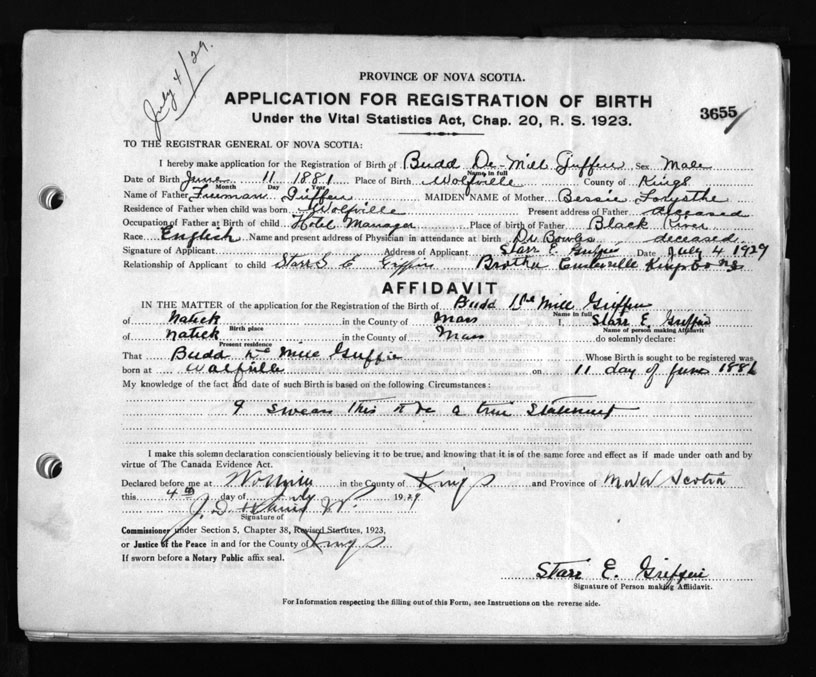 July 4/29.
PROVINCE OF NOVA SCOTIA.
APPLICATION FOR REGISTRATION OF BIRTH
Under the Vital Statistics Act, Chap. 20, R. S. 1923.
3655
TO THE REGISTRAR GENERAL OF NOVA SCOTIA:
I hereby make application for the Registration of Birth of Budd De-Mill Griffin Sex Male
Name in full
Date of Birth June 11 1881 Place of Birth Wolfville County of Kings
Month Day Year
Name of Father Freeman Griffin MAIDEN NAME of Mother Bessie Forsythe
Residence of Father when child was born Wolfville Present address of Father deceased
Occupation of Father at Birth of child Hotel Manager Place of birth of Father Black River
Race English Name and present address of Physician in attendance at birth Dr Bowles deceased
Signature of Applicant Address of Applicant Starr E. Griffin Date July 4 1929
Relationship of Applicant to child Starr E Griffin Brother Centerville Kings Co N.S.
AFFIDAVIT
IN THE MATTER of the application for the Registration of the Birth of Budd De Mill Griffin
Name in full
of Natick in the County of Mass I, Starr E. Griffin
Birth place Name of person making Affidavit
of Natick in the County of Mass do solemnly declare:
Present residence
That Budd De Mill Griffin Whose Birth is sought to be registered was
born at Wolfville on 11 day of June 1881
My knowledge of the fact and date of such Birth is based on the following Circumstances:
I swear this to be a true statement
I make this solemn declaration conscientiously believing it to be true, and knowing that it is of the same force and effect as if made under oath and by
virtue of The Canada Evidence Act.
Declared before me at Wolfville in the County of Kings and Province of Nova Scotia
this 4th day of July 1929
J. D. J.P.
Signature of
Commissioner under Section 5, Chapter 38, Revised Statutes, 1923,
or Justice of the Peace in and for the County of Kings
If sworn before a Notary Public affix seal.
Starr E. Griffin
Signature of Person making Affidavit.
For Information respecting the filling out of this Form, see Instructions on the reverse side.